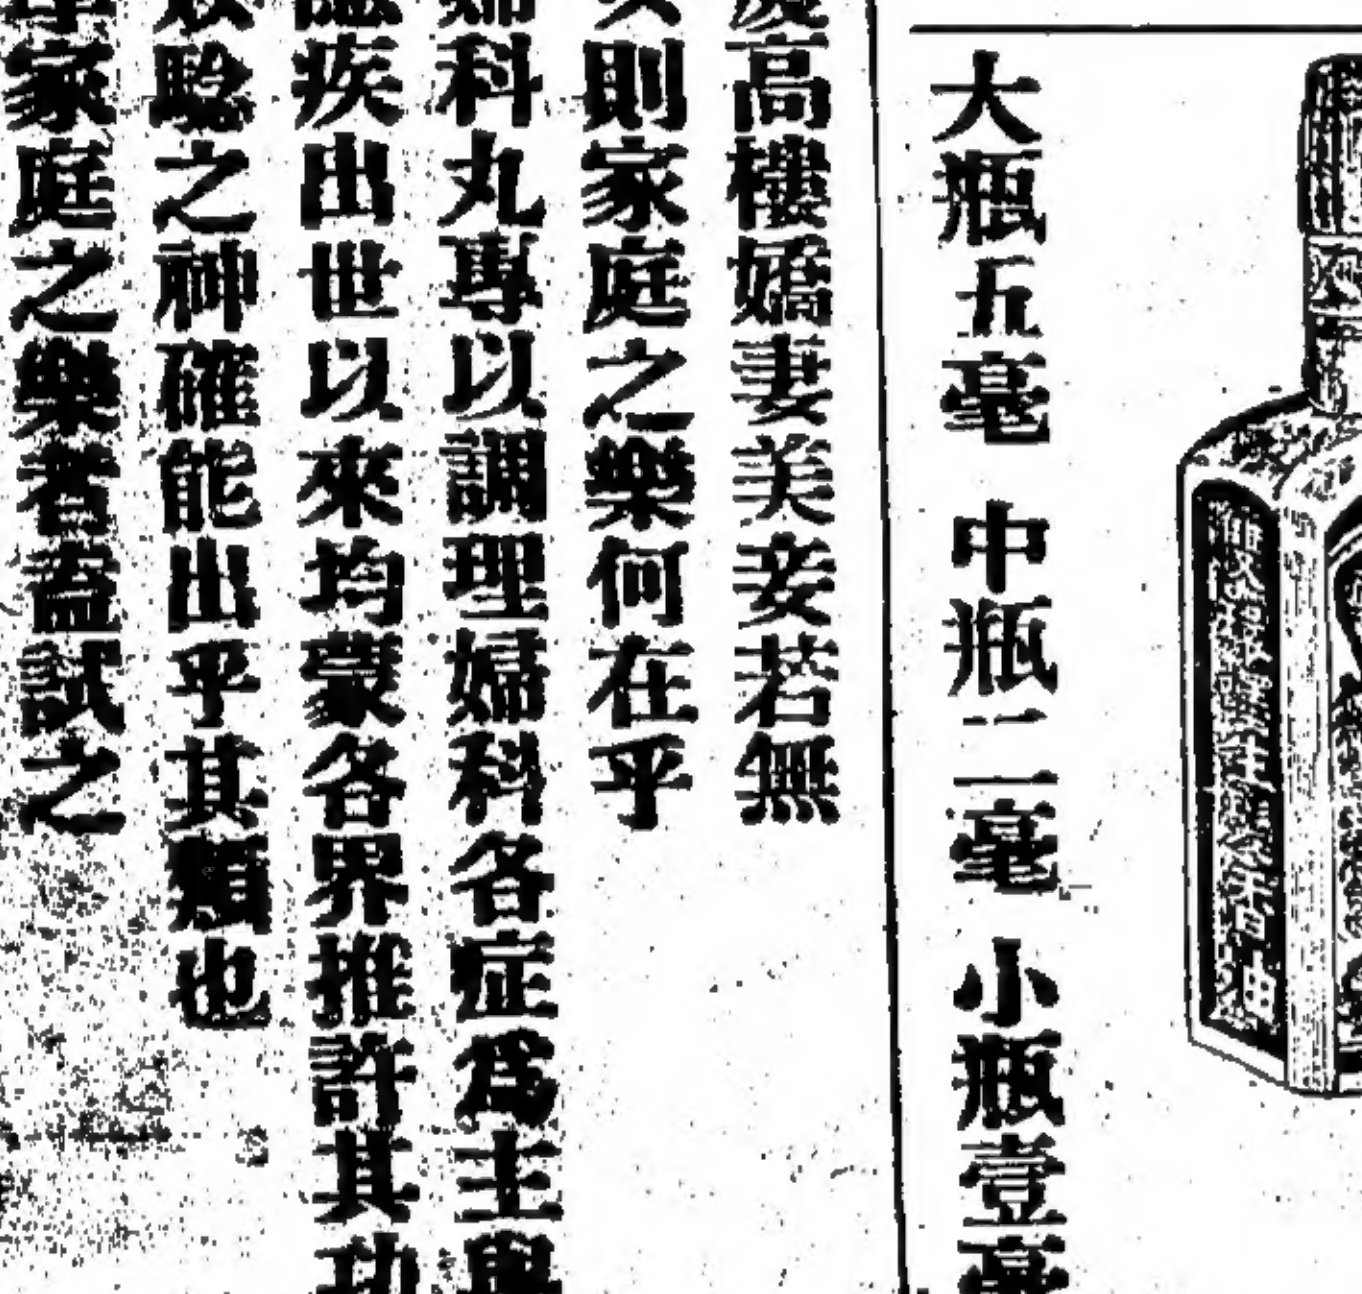 大瓶五毫 中瓶二毫 小瓶壹毫
高樓嬌妻美妾若無
則家庭之樂何在乎
科丸專以調理婦科各症爲主
疾出世以來均蒙各界推許其功
驗之神確能出乎其類也
家庭之樂者盍試之